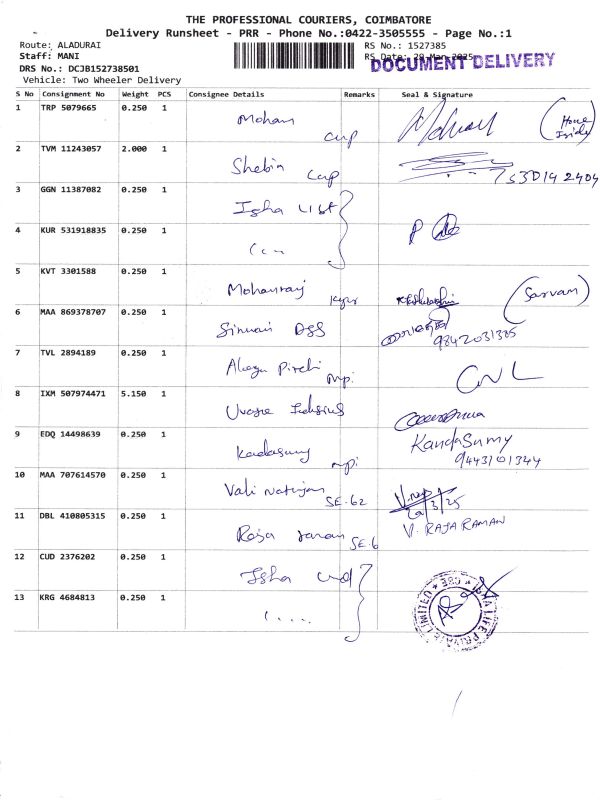 THE PROFESSIONAL COURIERS, COIMBATORE
Delivery Runsheet - PRR - Phone No.:0422-3505555 - Page No.:1
Route: ALADURAI
Staff: MANI
DRS No.: DCJB152738501
Vehicle: Two Wheeler Delivery
RS No.: 1527385
RS Date: 29-Mar-2025
DOCUMENT DELIVERY
S No Consignment No Weight PCS Consignee Details Remarks Seal & Signature
1 TRP 5079665 0.250 1 Mohan
2 TVM 11243057 2.000 1 Shebin
3 GGN 11387082 0.250 1 Isha
4 KUR 531918835 0.250 1
5 KVT 3301588 0.250 1 Mohanraj (Sarvam)
6 MAA 869378707 0.250 1 9842031385
7 TVL 2894189 0.250 1
8 IXM 507974471 5.150 1
9 EDQ 14498639 0.250 1 Kandasamy KandaSamy
9443101344
10 MAA 707614570 0.250 1 Vali Natrajan SE-62
11 DBL 410805315 0.250 1 Raja raman SE-6 V. RAJARAMAN
12 CUD 2376202 0.250 1 Isha
13 KRG 4684813 0.250 1